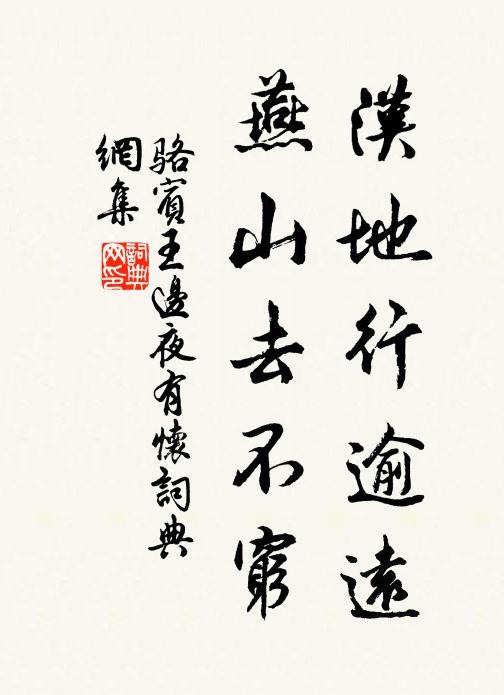 漢地行逾遠
燕山去不窮
駱賓王邊夜有懷詞典
網集
詞典
网印